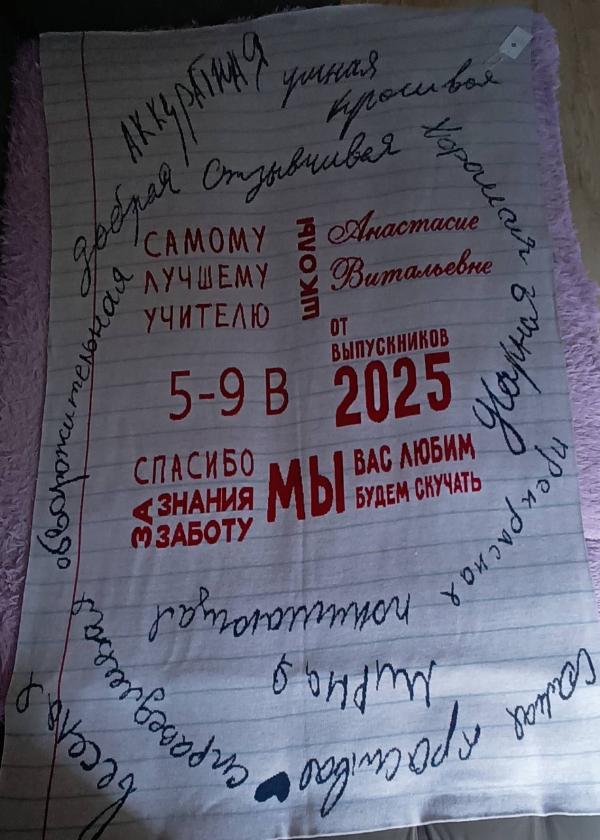 АККУРАТНАЯ
умная
красивая
Добрая
Отзывчивая
Хорошая
САМОМУ
ЛУЧШЕМУ
УЧИТЕЛЮ
ШКОЛЫ
Анастасие
Витальевне
ОТ
ВЫПУСКНИКОВ
2025
5-9 В
СПАСИБО
ЗА ЗНАНИЯ
ЗАБОТУ
МЫ
ВАС ЛЮБИМ
БУДЕМ СКУЧАТЬ
прекрасная
понимающая
справедливая
весёлая
самая красивая